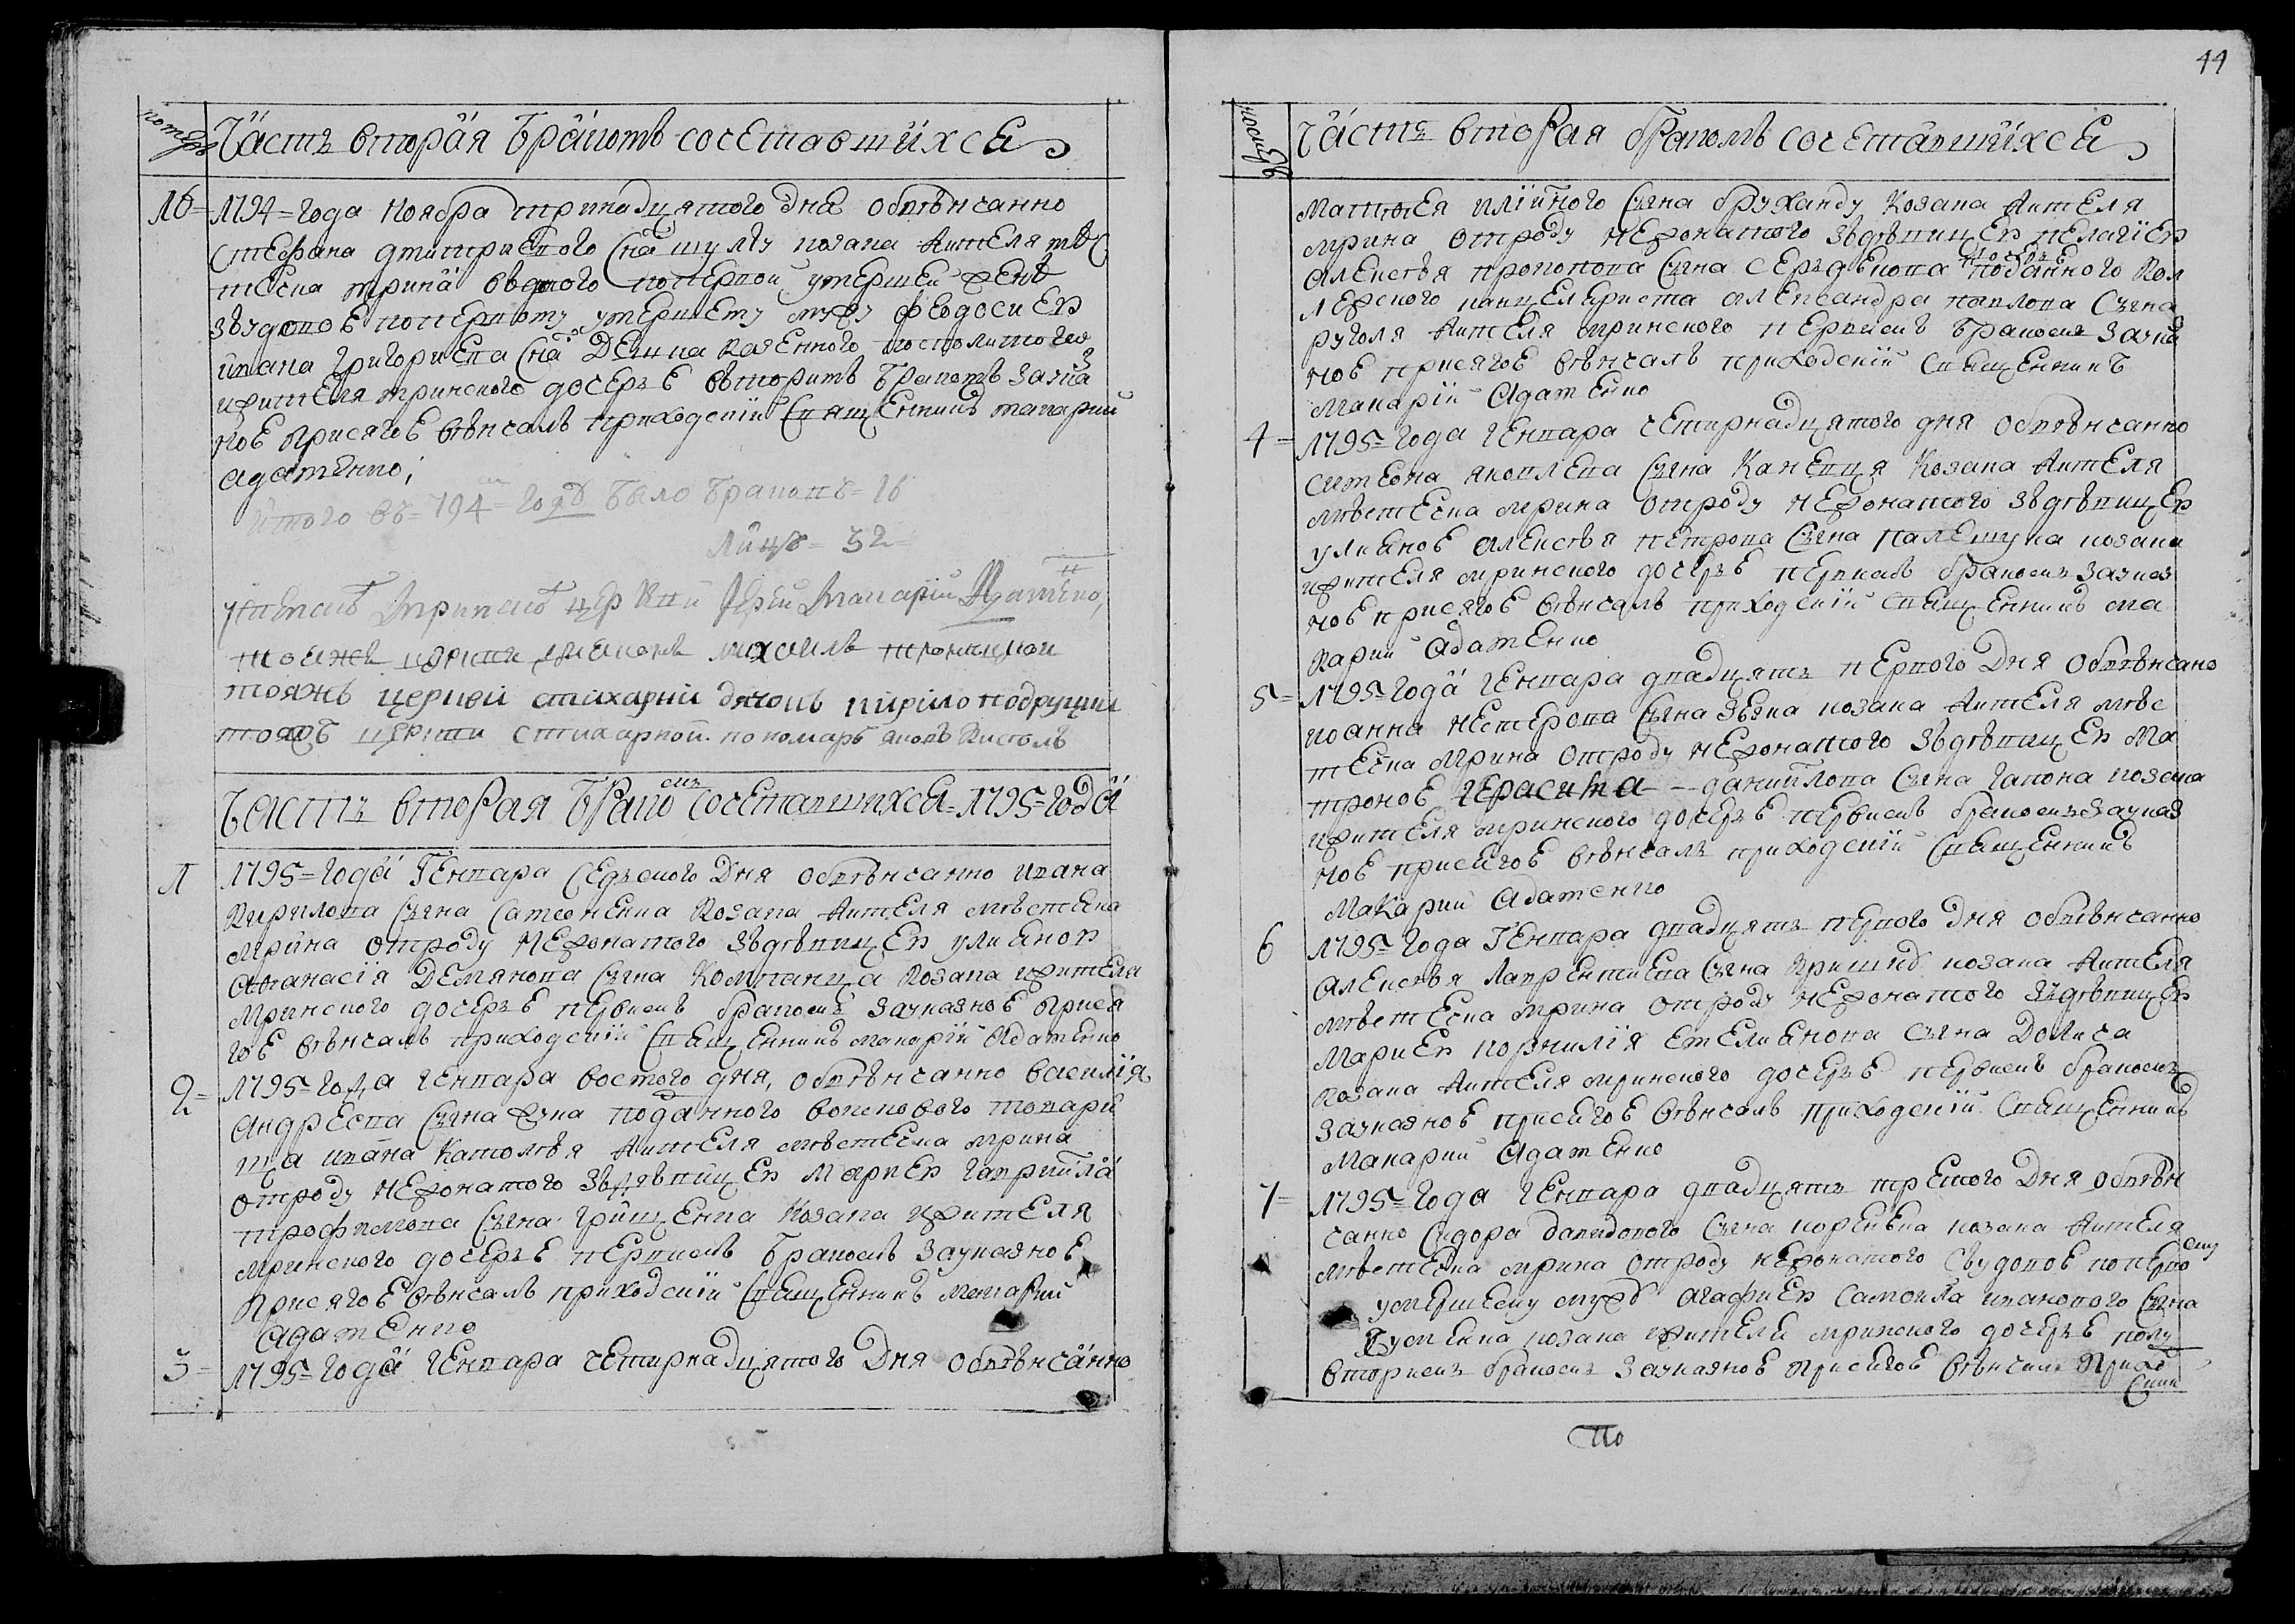 номеръ
Часть вторая бракомъ сочетавшихся
16
1794 года ноября тринадцятого дня обвѣнчанно
Стефана дмитриевого сна шулгу козака жителя мѣс
течка мрина вдового по первой умершей женѣ
звудовое по первому умершему мужу феодосиею
ивана григориева сна казенного посполитого
жителя мринского дочерѣ вторимъ бракомъ зауказ
ное присягое вѣнчалъ приходский священникъ макарий
адаменко
Итого въ 794 м годѣ было браковъ 16
лицъ 32
Успенской мринской церкви иерей макарий Адаменко
тоиже церкви диаконъ михаилъ троицкой
тояжъ церкви стихарний дячокъ кирило подруцкий
тояжъ церкви стихарной пономарь яковъ кисѣль
Часть вторая бракомъ сочетавшихся 1795 года
1
1795 года генвара седмого дня обвѣнчанно ивана
кирилова сына самсоненка козака жителя мѣстечка
мрина отроду неженатого здѣвицею улианою
афанасия демянова сына компанца козака жителя
мринского дочерѣ первимъ бракомъ зауказное прися
гое вѣнчалъ приходский священникъ макарий Адаменко
2
1795 года генвара восмого дня обвѣнчанно василия
андреева сына жука поданного воискового товари
ща ивана жителя мѣстечка мрина
отроду неженатого здѣвицею мариею гаврийла
трофимова сына грищенка козака жителя
мринского дочерѣ первимъ бракомъ зауказное
присягое вѣнчалъ приходский священникъ макарий
адаменко
3
1795 года генвара четирнадцятого дня обвѣнчанно
44
номеръ
Часть вторая бракомъ сочетавшихся
матфея сына козака жителя
мрина отроду неженатого здѣвицею пелагиею
алексѣя прокопова сына дочерѣ поданного кол
лежского канцеляриста александра павлова сына
жителя мринского первимъ бракомъ заука
ное присягое вѣнчалъ приходский священникъ
макарий адаменко
4
1795 года генвара четирнадцятого дня обвѣнчанно
симеона яковлева сына козака жителя
мѣстечка мрина отроду неженатого здѣвицею
улианое алексѣя петрова сына козака
жителя мринского дочерѣ первимъ бракомъ зауказ
ное присягое вѣнчалъ приходский священникъ ма
карий адаменко
5
1795 года генвара двадцять первого дня обвѣнчано
иоанна нестерова сына козака жителя мѣс
течка мрина отроду неженатого здѣвицею ма
троное герасима данийлова сына гапона козака
жителя мринского дочерѣ первимъ бракомъ зауказ
ное присягое вѣнчалъ приходский священникъ
макарий адаменко
6
1795 года генвара двадцять первого дня обвѣнчанно
алексѣя лаврентиева сына козака жителя
мѣстечка мрина отроду неженатого здѣвицею
мариею корнилия емелианова сына
козака жителя мринского дочерѣ первимъ бракомъ
зауказное присягое вѣнчалъ приходский священникъ
макарий адаменко
7
1795 года генвара двадцять третого дня обвѣн
чанно сидора давидового сына козака жителя
мѣстечка мрина отроду неженатого свудовое по первому
умершему мужѣ агафиею самойла иванового сына
козака жителя мринского дочерѣ полу
вторимъ бракомъ зауказное присягое вѣнчалъ приход
ский